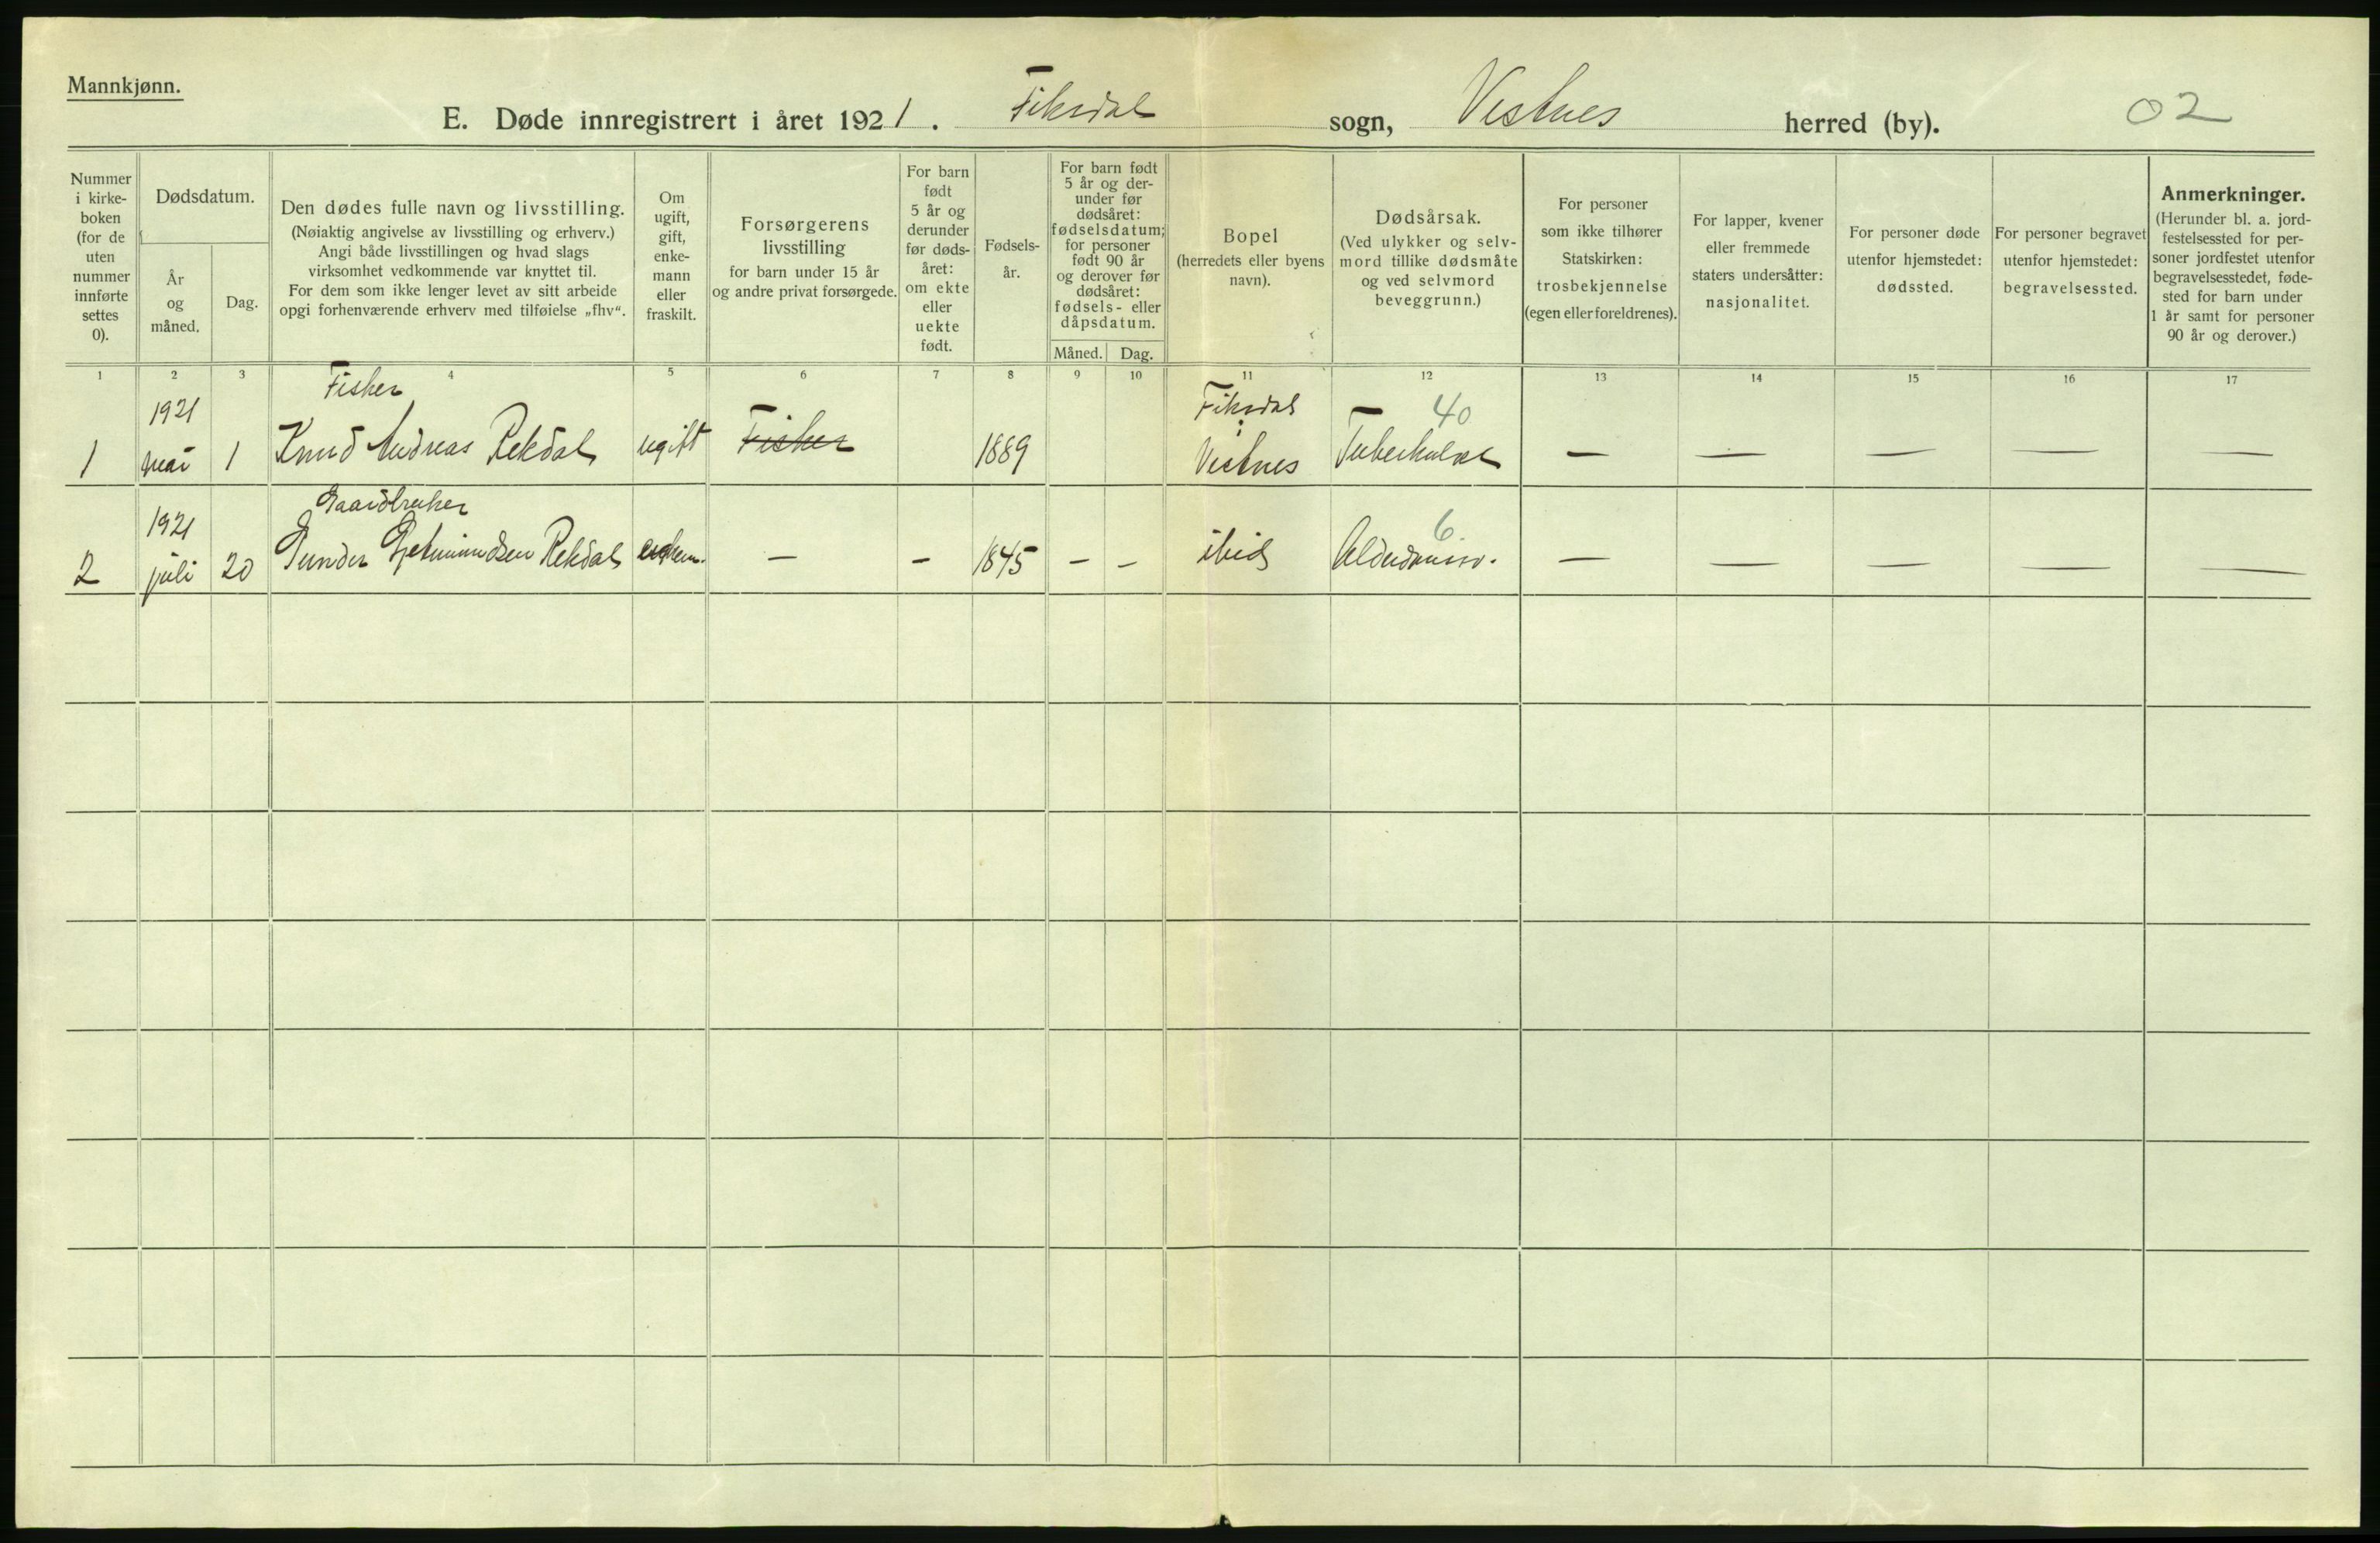 Mannkjønn.
E. Døde innregistrert i året 1921. Fiksdal sogn, Vestnes herred (by). 02
Nummer
i kirke-
boken
(for de
uten
nummer
innførte
settes
0).
Dødsdatum.
År
og
måned.
Dag.
Den dødes fulle navn og livsstilling.
(Nøiaktig angivelse av livsstilling og erhverv.)
Angi både livsstillingen og hvad slags
virksomhet vedkommende var knyttet til.
For dem som ikke lenger levet av sitt arbeide
opgi forhenværende erhverv med tilføielse „fhv“.
Om
ugift,
gift,
enke-
mann
eller
fraskilt.
Forsørgerens
livsstilling
for barn under 15 år
og andre privat forsørgede.
For barn
født
5 år og
derunder
før døds-
året:
om ekte
eller
uekte
født.
Fødsels-
år.
For barn født
5 år og der-
under før
dødsåret:
fødselsdatum;
for personer
født 90 år
og derover før
dødsåret:
fødsels- eller
dåpsdatum.
Måned. Dag.
Bopel
(herredets eller byens
navn).
Dødsårsak.
(Ved ulykker og selv-
mord tillike dødsmåte
og ved selvmord
beveggrunn.)
For personer
som ikke tilhører
Statskirken:
trosbekjennelse
(egen eller foreldrenes).
For lapper, kvener
eller fremmede
staters undersåtter:
nasjonalitet.
For personer døde
utenfor hjemstedet:
dødssted.
For personer begravet
utenfor hjemstedet:
begravelsessted.
Anmerkninger.
(Herunder bl. a. jord-
festelsessted for per-
soner jordfestet utenfor
begravelsesstedet, føde-
sted for barn under
1 år samt for personer
90 år og derover.)
1 2 3 4 5 6 7 8 9 10 11 12 13 14 15 16 17
1921 Fisker Fiksdal 40
1 mai 1 Knud Andreas Rekdal ugift Fisker 1889 i Vestnes Tuberkulose — — — — —
1921 Gaardbruker 6
2 juli 20 Gunder Rekdal enkem. — — 1845 — — ibid — — — — —